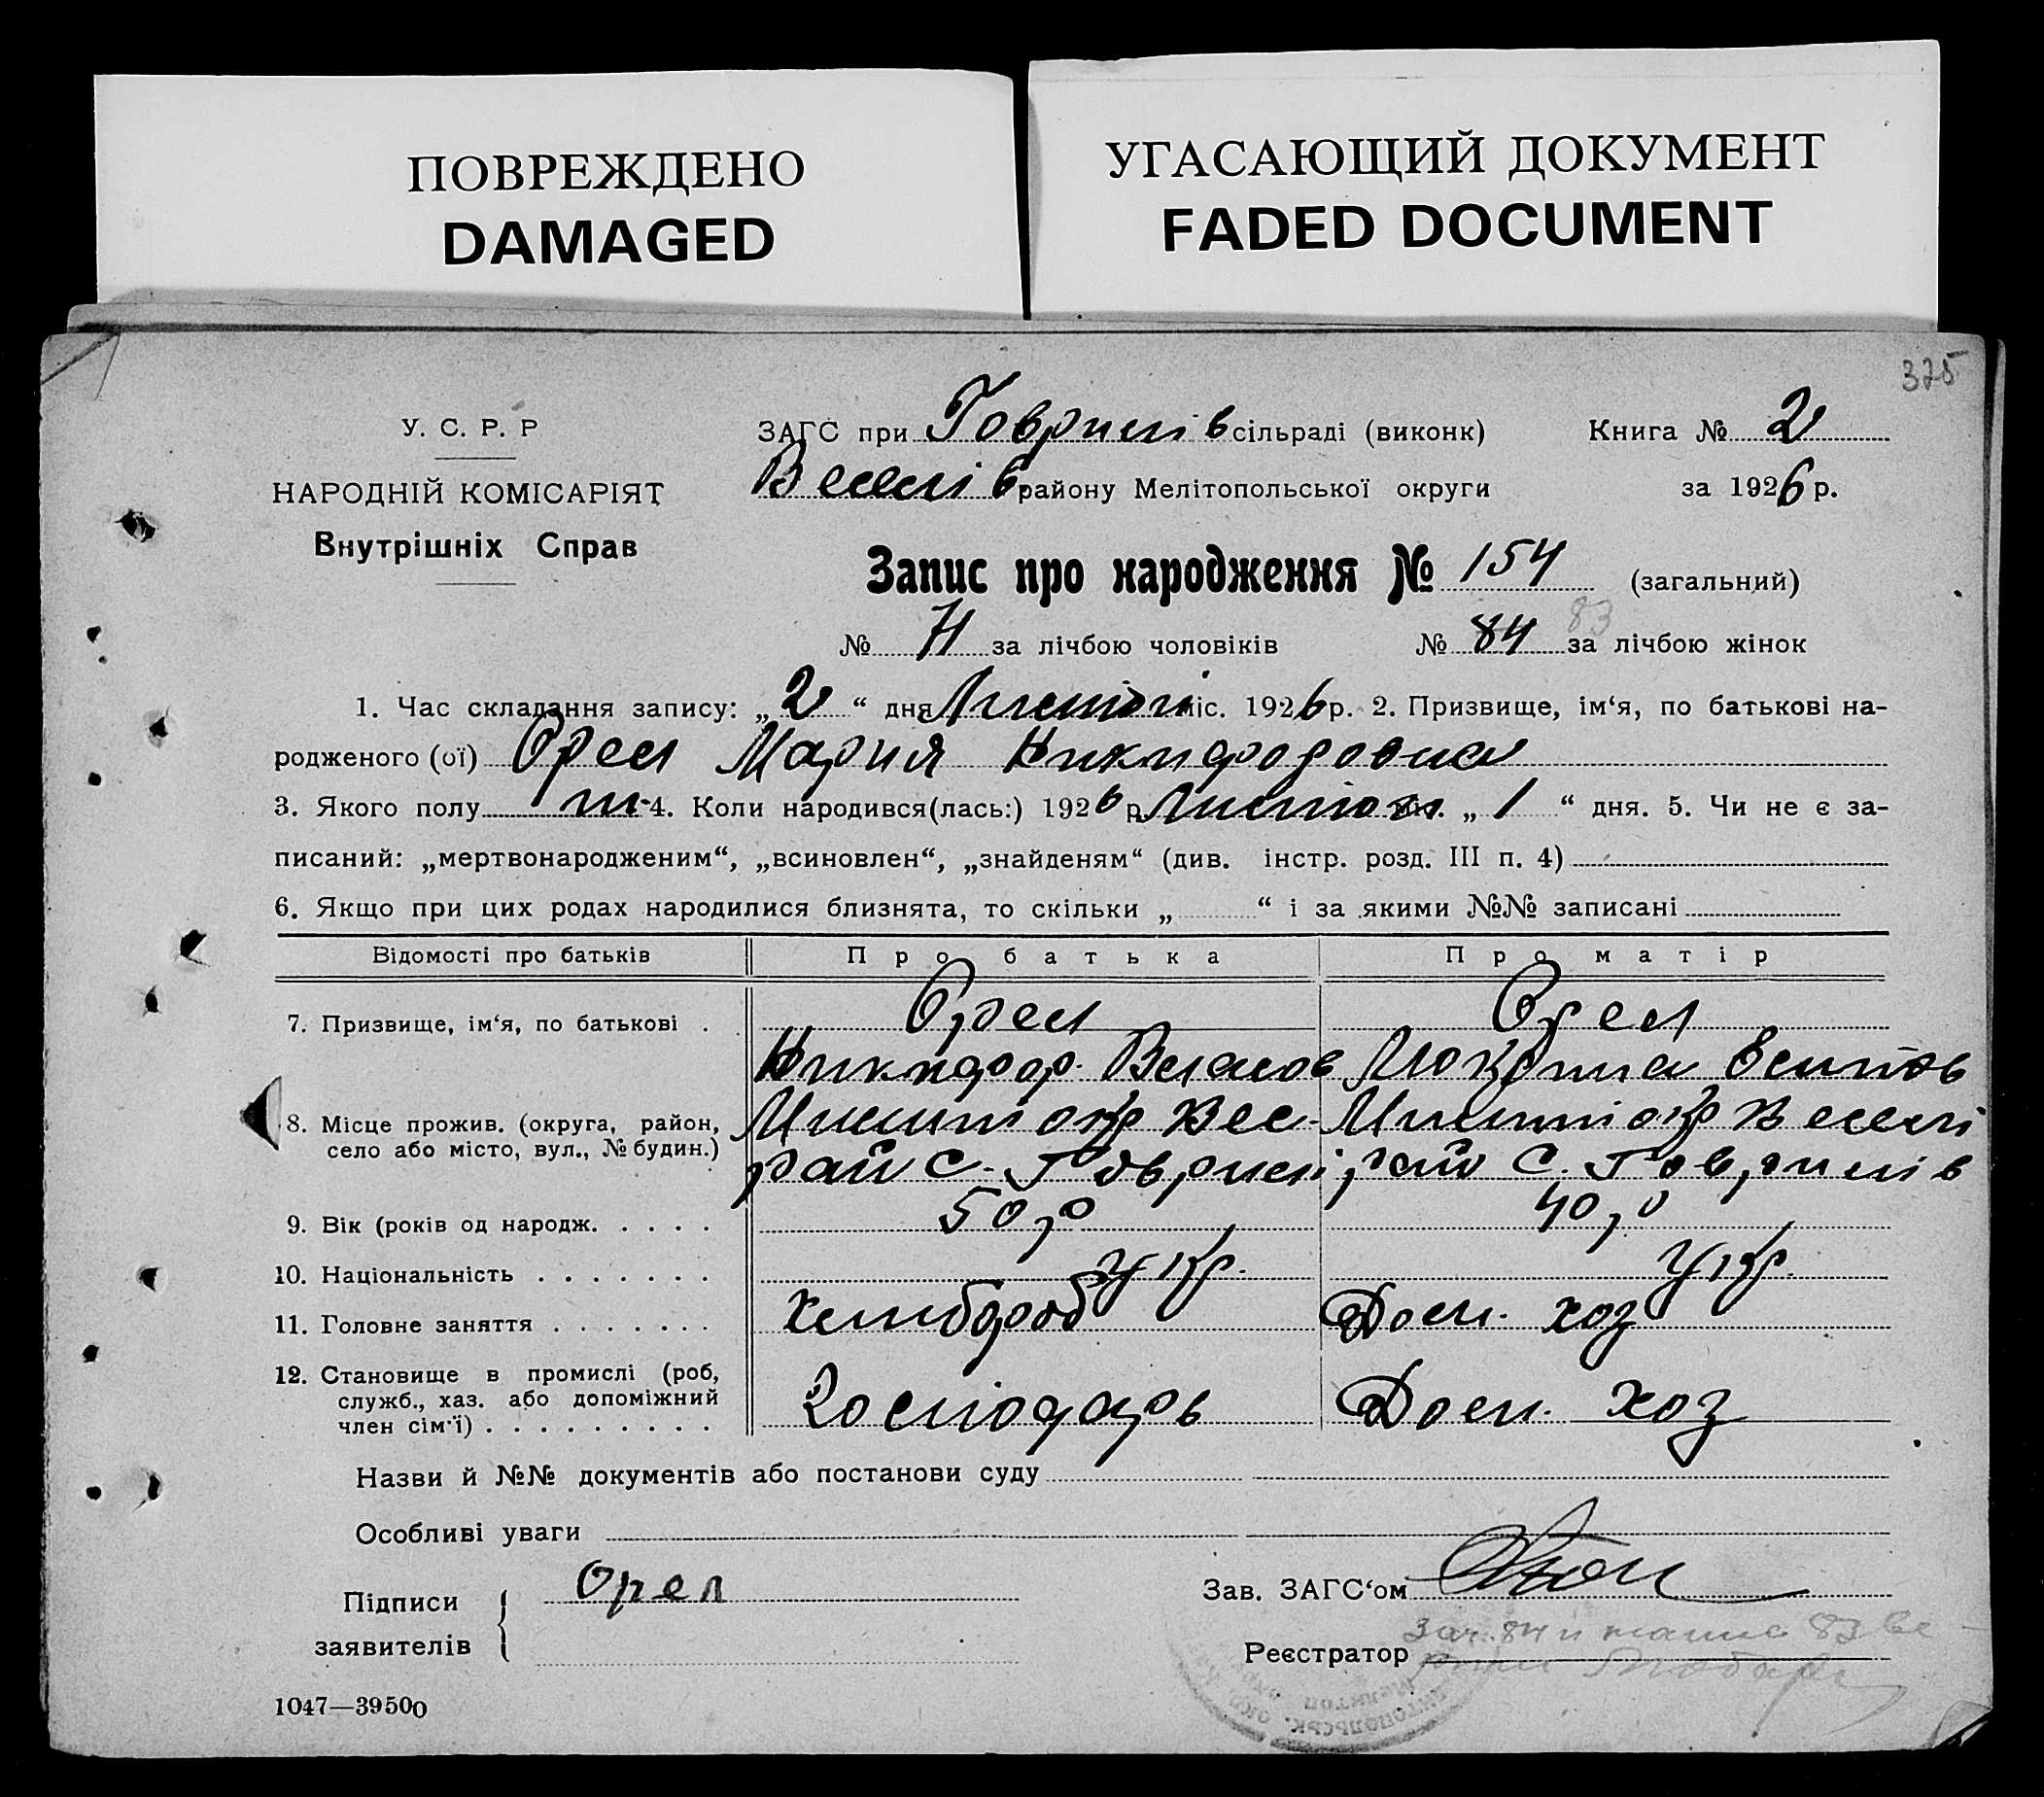 ПОВРЕЖДЕНО
DAMAGED
УГАСАЮЩИЙ ДОКУМЕНТ
FADED DOCUMENT
325
У. С. Р. Р
НАРОДНІЙ КОМІСАРІЯТ
Внутрішніх Справ
ЗАГС при Говрилів сільраді (виконк) Книга № 2
Веселів району Мелітопольської округи за 1926 р.
Запис про народження № 154 (загальний)
№ 71 за лічбою чоловіків № 84 83 за лічбою жінок
1. Час складання запису: „ 2 “ дня міс. 1926 р. 2. Призвище, ім‘я, по батькові на-
родженого (ої) Орел Мария Никифоровна
3. Якого полу 4. Коли народився(лась:) 1926 р. міс. „ 1 “ дня. 5. Чи не є за-
писаний: „мертвонародженим“, „всиновлен“, „знайденям“ (див. інстр. розд. III п. 4)
6. Якщо при цих родах народилися близнята, то скільки „ “ і за якими №№ записані
Відомості про батьків Про батька Про матір
7. Призвище, ім‘я, по батькові . Орел Орел
Никифор.
8. Місце прожив. (округа, район, село або місто, вул., № будин.) Мелит окр Вес Мелит окр Веселі
рай с. Говрилі рай с. Говрилів
9. Вік (років од народж. . . . . 50 р 40 р
10. Національність . . . . . . . укр. укр.
11. Головне заняття . . . . . . . хлибороб Дом. хоз
12. Становище в промислі (роб, служб., хаз. або допоміжний член сім‘ї) . . . . . . . . . Господарь Дом. хоз
Назви й №№ документів або постанови суду
Особливі уваги
Підписи заявителів Орел
Зав. ЗАГС‘ом
Реєстратор
1047—39500